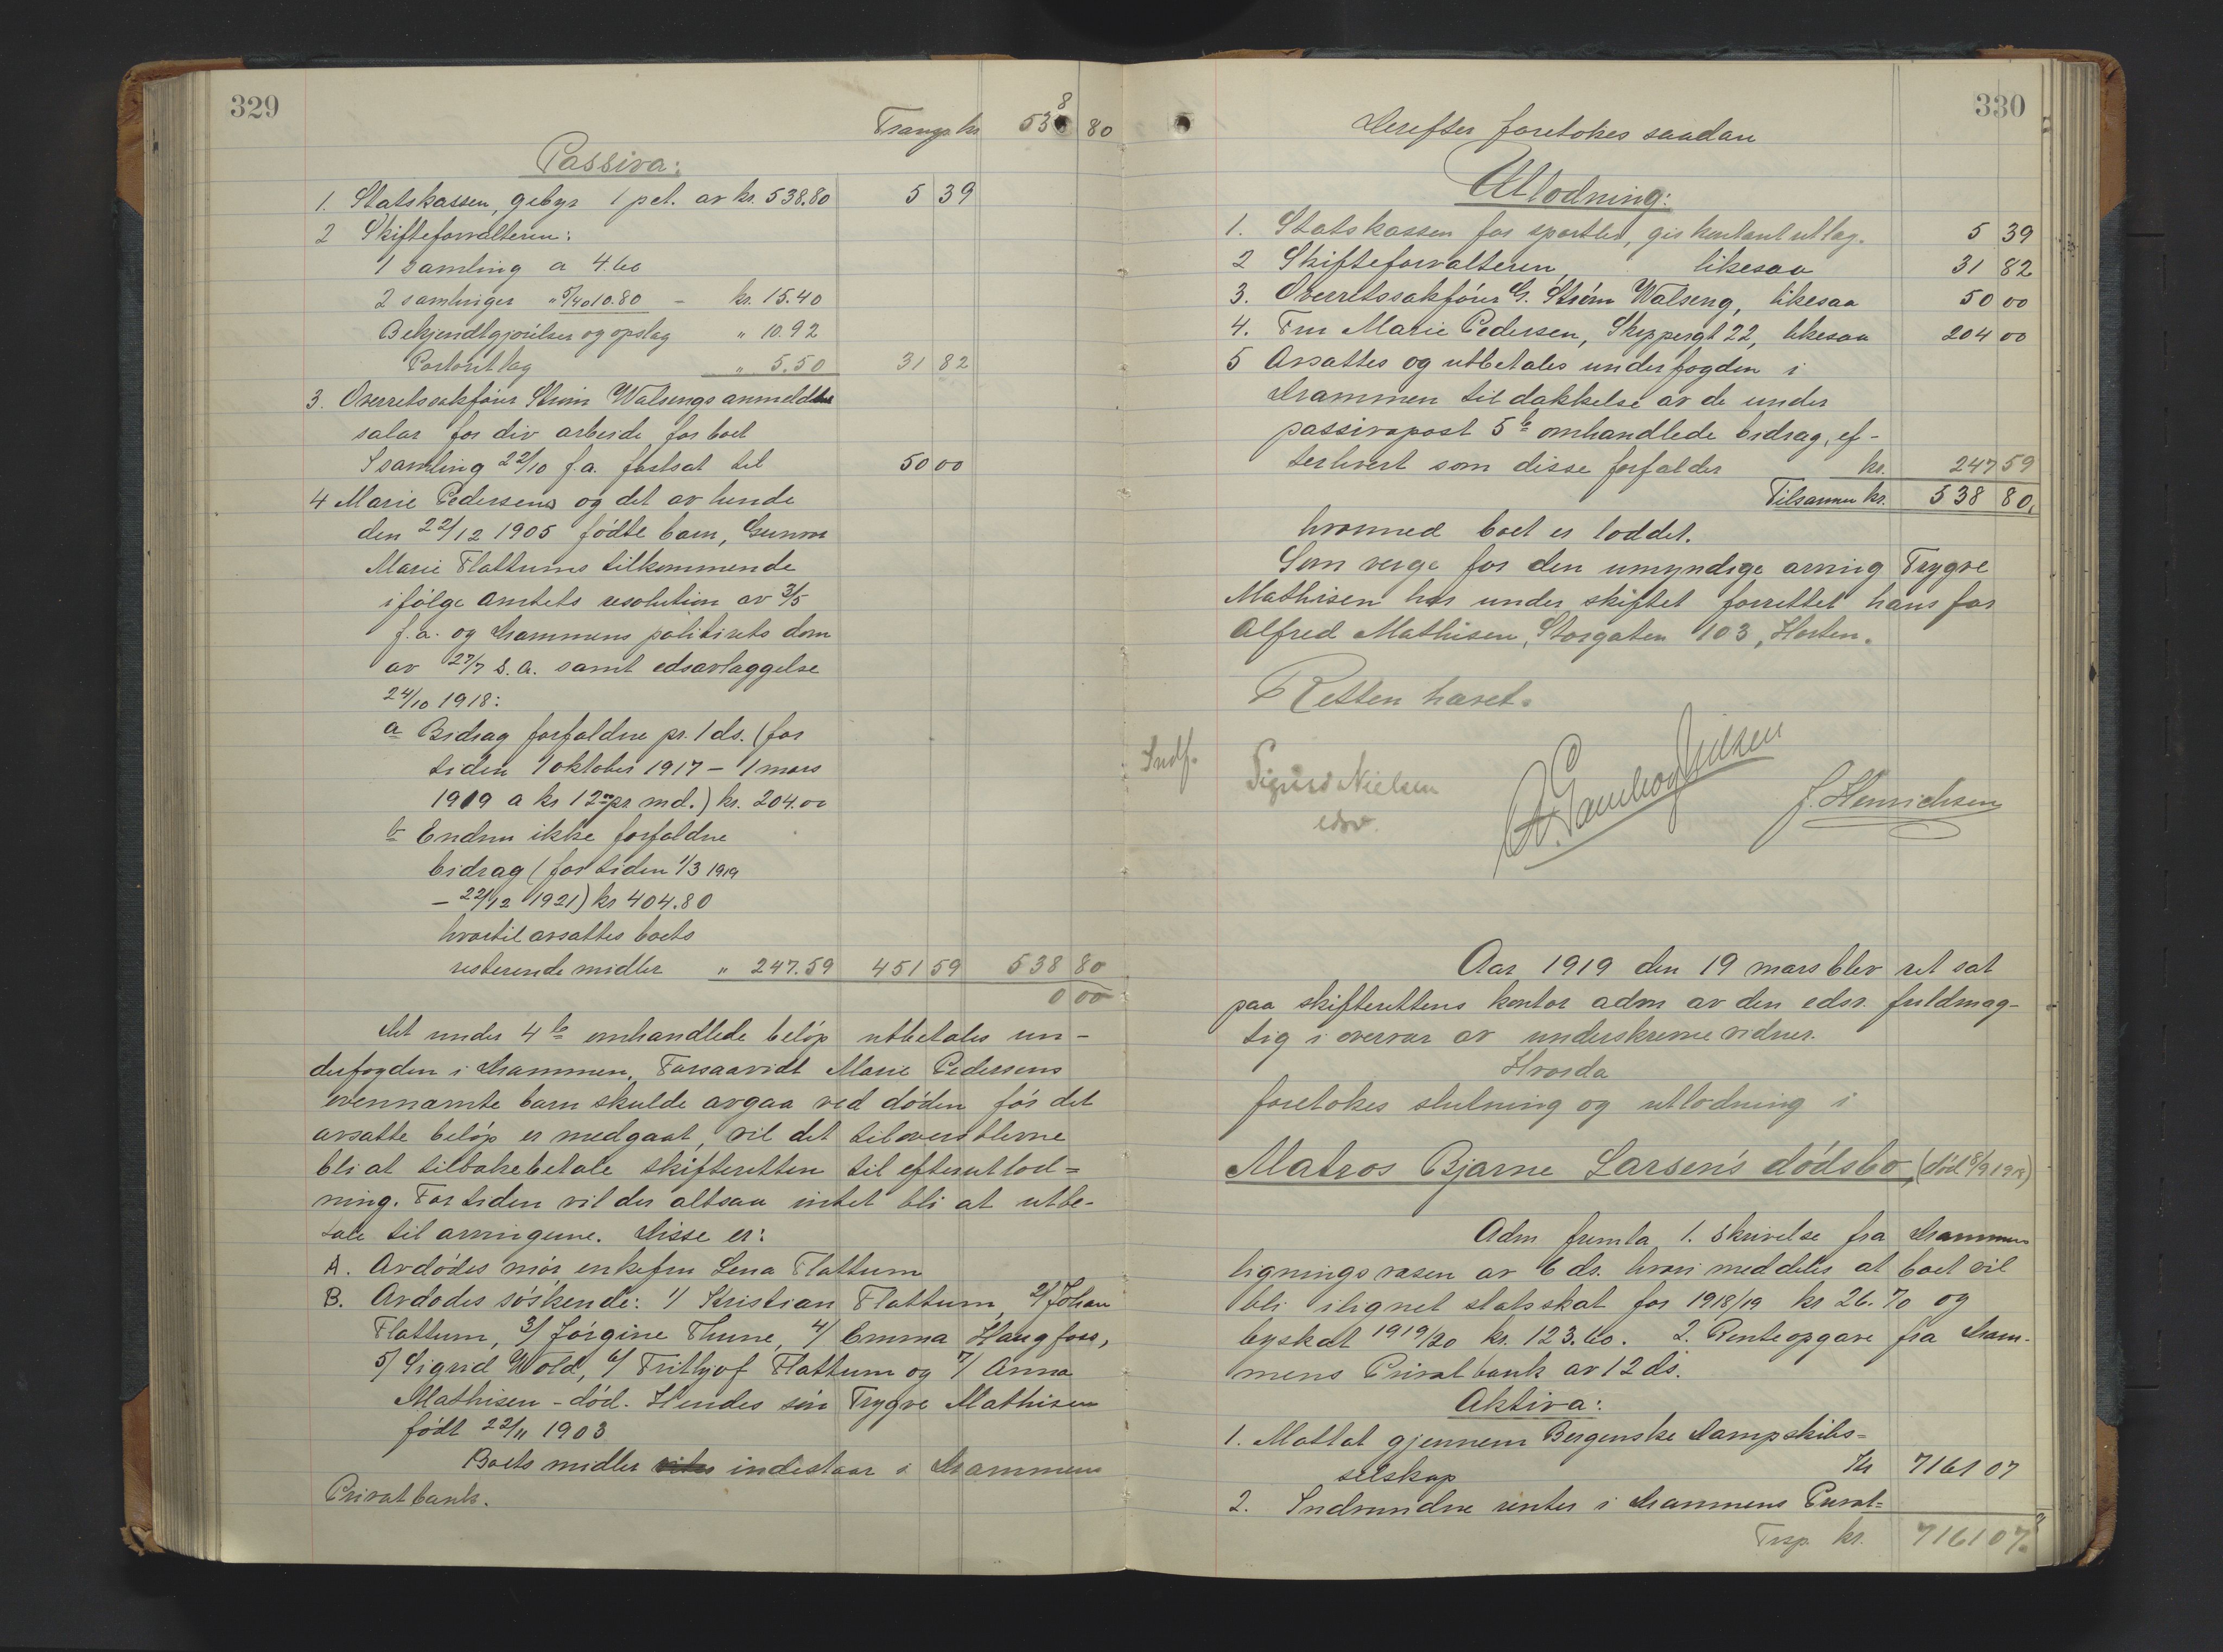 329
Transp kr 538 80
Passiva:
1. Statskassen, gebyr 1 pct. av kr. 538.80 5 39
2 Skifteforvalteren:
1 samling a 4.60
2 samlinger " 5/40 10.80 – kr. 15.40
Bekjendtgjørelser og opslag " 10.92
Portoutlag " 5.50 31 82
3. Overretssakfører Strøm Walsengs anmeldte
salær for div arbeide for boet
I samling 22/10 f.a. fastsat til 50 00
4 Marie Pedersens og det av hende
den 22/12 1905 fødte barn, Gunvor
Marie Flattums tilkommende
ifølge amtets resolution av 3/5
f.a. og Drammens politirets dom
av 27/7 s.a. samt edsavlæggelse
24/10 1918:
a Bidrag forfaldne pr. 1 ds. (for
tiden 1 oktober 1917 – 1 mars
1919 a kr 12.00 pr md.) kr. 204.00
b Endnu ikke forfaldne
bidrag (for tiden 1/3 1919
– 22/12 1921) kr 404.80
hvortil avsættes boets
resterende midler " 247.59 451 59 538 80
0 00
Det under 4 b omhandlede beløp utbetales un-
derfogden i Drammen. Forsaavidt Marie Pedersens
ovennævnte barn skulde avgaa ved døden før det
avsatte beløp er medgaat, vil det tiloversblevne
bli at tilbakebetale skifteretten til efterutlod=
ning. For tiden vil der altsaa intet bli at utbe-
tale til arvingerne. Disse er:
A. Avdødes mor enkefru Lena Flattum
B. Avdødes søskende: 1/ Kristian Flattum, 2/ Johan
Flattum, 3/ Jørgine Thune, 4/ Emma Haugfoss,
5/ Sigrid Wold, 6/ Frithjof Flattum og 7/ Anna
Mathisen – død. Hendes søn Trygve Mathisen
født 22/11 1903
Boets midler indestaar i Drammens
Privatbank.
330
Derefter foretokes saadan
Utlodning:
1. Statskassen for sportler, gis kontant utlæg. 5 39
2 Skifteforvalteren, likesaa 31 82
3. Overretssakfører G. Strøm Walseng, likesaa 50 00
4. Fru Marie Pedersen, Skippergt 22, likesaa 204 00
5 Avsættes og utbetales underfogden i
Drammen til dækkelse av de under
passivapost 5 b omhandlede bidrag, ef-
terhvert som disse forfalder kr. 247 59
Tilsammen kr. 538 80.
hvormed boet er loddet.
Som verge for den umyndige arving Trygve
Mathisen har under skiftet forrettet hans far
Alfred Mathisen, Storgaten 103, Horten.
Retten hævet.
Indf.
Sigurd Nielsen
edsv.
J. Henrichsen
Aar 1919 den 19 mars blev ret sat
paa skifterettens kontor adm av den edsv. fuldmæg-
tig i overvær av underskrevne vidner.
Hvorda
foretokes slutning og utlodning i
Matros Bjarne Larsen's dødsbo, (død 8/9 1918)
Adm fremla 1. skrivelse fra Drammens
ligningsvæsen av 6 ds. hvori meddeles at boet vil
bli ilignet statsskat for 1918/19 kr 26.70 og
byskat 1919/20 kr. 123.60. 2. Renteopgave fra Dram-
mens Privatbank av 12 ds.
Aktiva:
1. Mottat gjennem Bergenske Dampskibs=
selskap Kr 7161 07
2. Indvundne renter i Drammens Privat=
Trsp. kr. 7161 07.